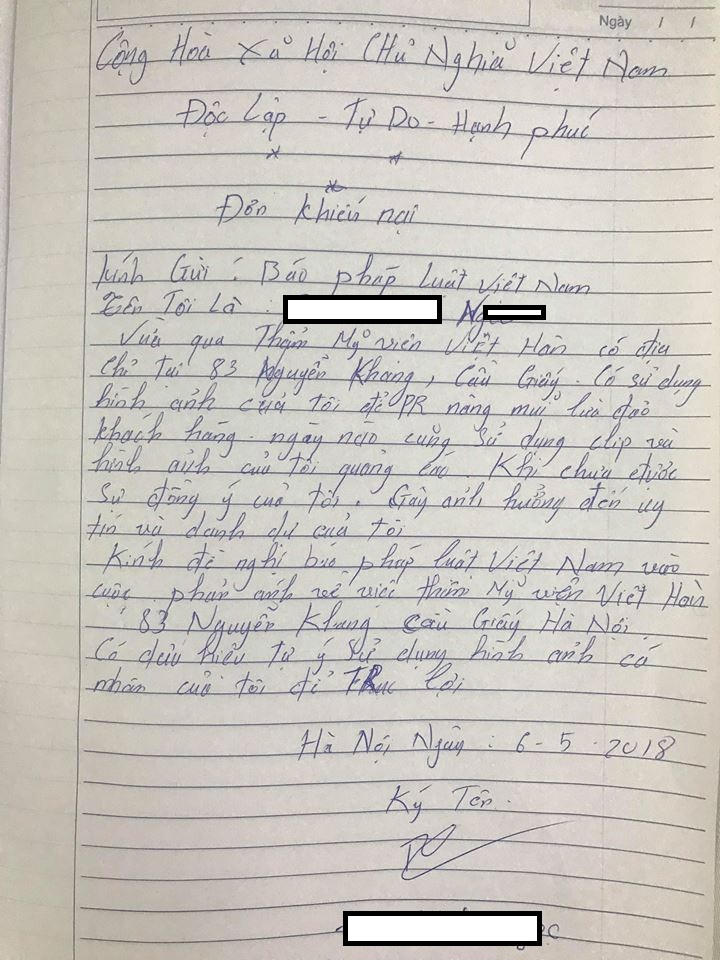 Ngày / /
Cộng Hoà Xã Hội Chủ Nghĩa Việt Nam
Độc Lập - Tự Do - Hạnh phúc
Đơn khiếu nại
Kính Gửi : Báo pháp luật Việt Nam
Tên Tôi Là :
Vừa qua Thẩm Mỹ viện Việt Hàn có địa
chỉ tại 83 Nguyễn Khang, Cầu Giấy. Có sử dụng
hình ảnh của tôi để PR nâng mũi lừa đảo
khách hàng. ngày nào cũng sử dụng clip và
hình ảnh của tôi quảng cáo Khi chưa được
sự đồng ý của tôi. Gây ảnh hưởng đến uy
tín và danh dự của tôi
Kính đề nghị báo pháp luật Việt Nam vào
cuộc phản ánh về việc thẩm Mỹ viện Việt Hàn
83 Nguyễn Khang Cầu Giấy Hà Nội.
Có dấu hiệu tự ý sử dụng hình ảnh cá
nhân của tôi để TRục lợi
Hà Nội Ngày : 6 - 5 . 2018
Ký Tên.